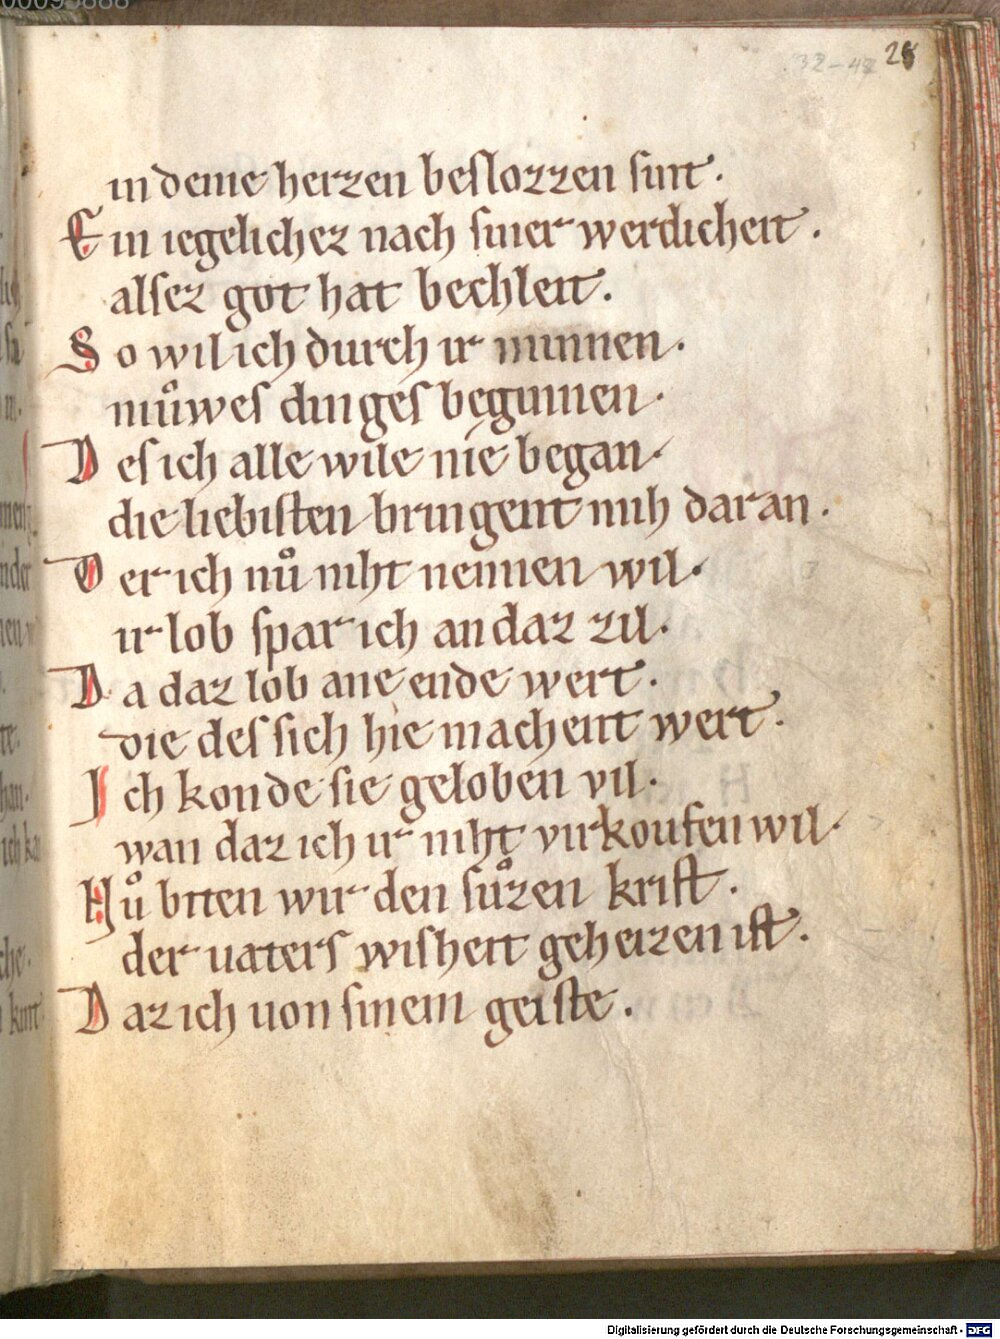 32-47 28
in deme herzen beslozzen sint.
Ein iegelichez nach siner werdicheit.
alsez got hat bechleit.
So wil ich durch ir minnen.
nuͦwes dinges beginnen.
Des ich alle wile nie began.
die liebisten bringent mih dar an.
Der ich nuͦ niht nennen wil.
ir lob spar ich an daz zil.
Da daz lob ane ende wert.
die des sich hie machent wert.
Ich konde sie geloben vil.
wan daz ich ir niht virkoufen wil.
Nuͦ biten wir den suͦzen krist.
der uaters wisheit geheizen ist.
Daz ich von sinem geiste.
Digitalisierung gefördert durch die Deutsche Forschungsgemeinschaft - DFG